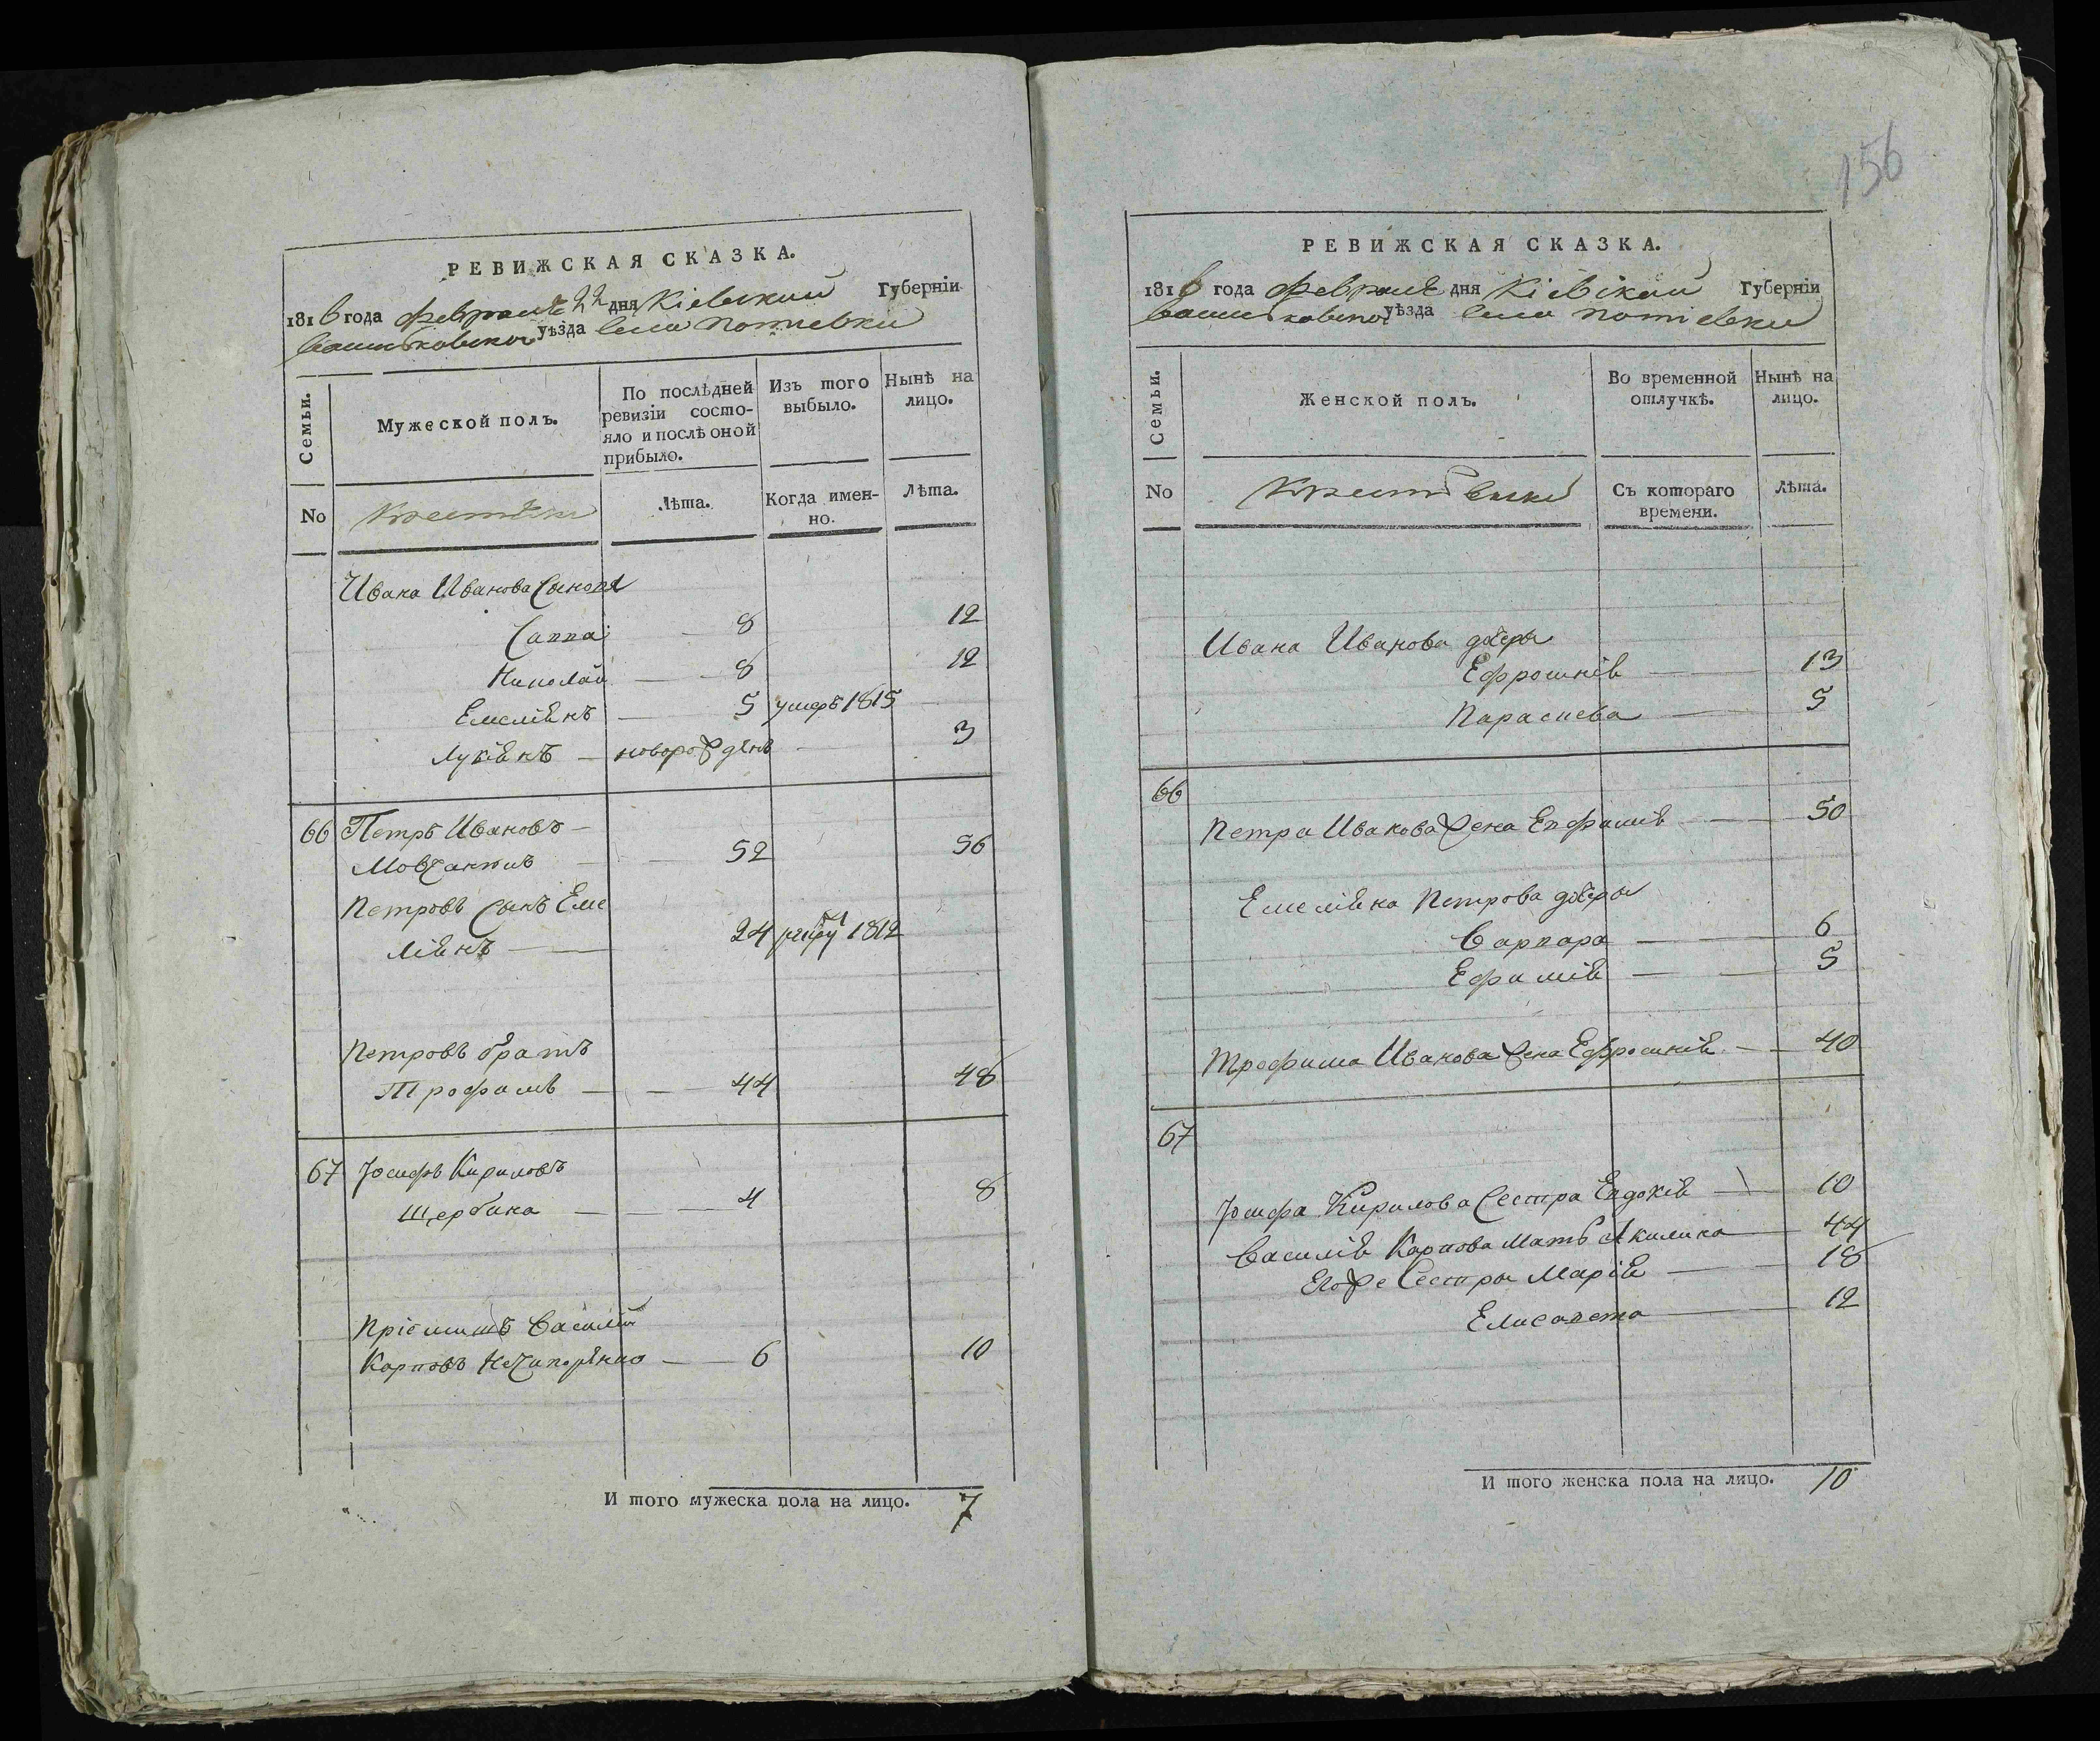 РЕВИЖСКАЯ СКАЗКА.
1816 года февраля 22 дня Кіевской Губерніи
уѣзда села Потіевки
Семьи.
Мужеской полъ.
По послѣдней
ревизіи состо-
яло и послѣ оной
прибыло.
Изъ того
выбыло.
Нынѣ на
лицо.
No
Лѣта.
Когда имен-
но.
Лѣта.
Ивана Иванова Сыновя
Савва 8 12
Николай 8 12
Емеліянъ 5 умеръ 1815
Лукіянъ новорожденъ 3
66 Петръ Ивановъ
Мовчанъ 52 56
Петровъ Сынъ Еме
ліянъ 24 1812
Петровъ братъ
Трофимъ 44 48
67 Іосифъ Кириловъ
Щербина 4 8
Пріемышъ Василій
Карповъ Нечипоренко 6 10
И того мужеска пола на лицо. 7
156
РЕВИЖСКАЯ СКАЗКА.
1816 года февраля дня Кіевской Губерніи
уѣзда села Потіевки
Семьи.
Женской полъ.
Во временной
отлучкѣ.
Нынѣ на
лицо.
No
Съ котораго
времени.
Лѣта.
Ивана Иванова дочеры
Ефросинія 13
Параскева 5
66
Петра Иванова жена Евфимія 50
Емеліяна Петрова дочеры
Варвара 6
Ефимія 5
Трофима Иванова жена Ефросинія 40
67
Іосифа Кирилова Сестра Евдокія 10
Василія Карпова Мать Акилина 44
Егоже Сестры Марія 18
Елисавета 12
И того женска пола на лицо. 10